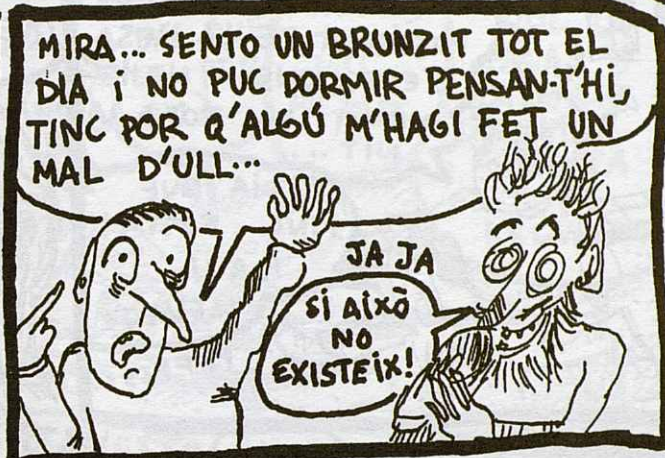 MIRA... SENTO UN BRUNZIT TOT EL
DIA i NO PUC DORMIR PENSAN-T'Hi,
TINC POR Q'ALGÚ M'HAGI FET UN
MAL D'ULL...
JA JA
Si AIXÒ
NO
EXISTEIX!